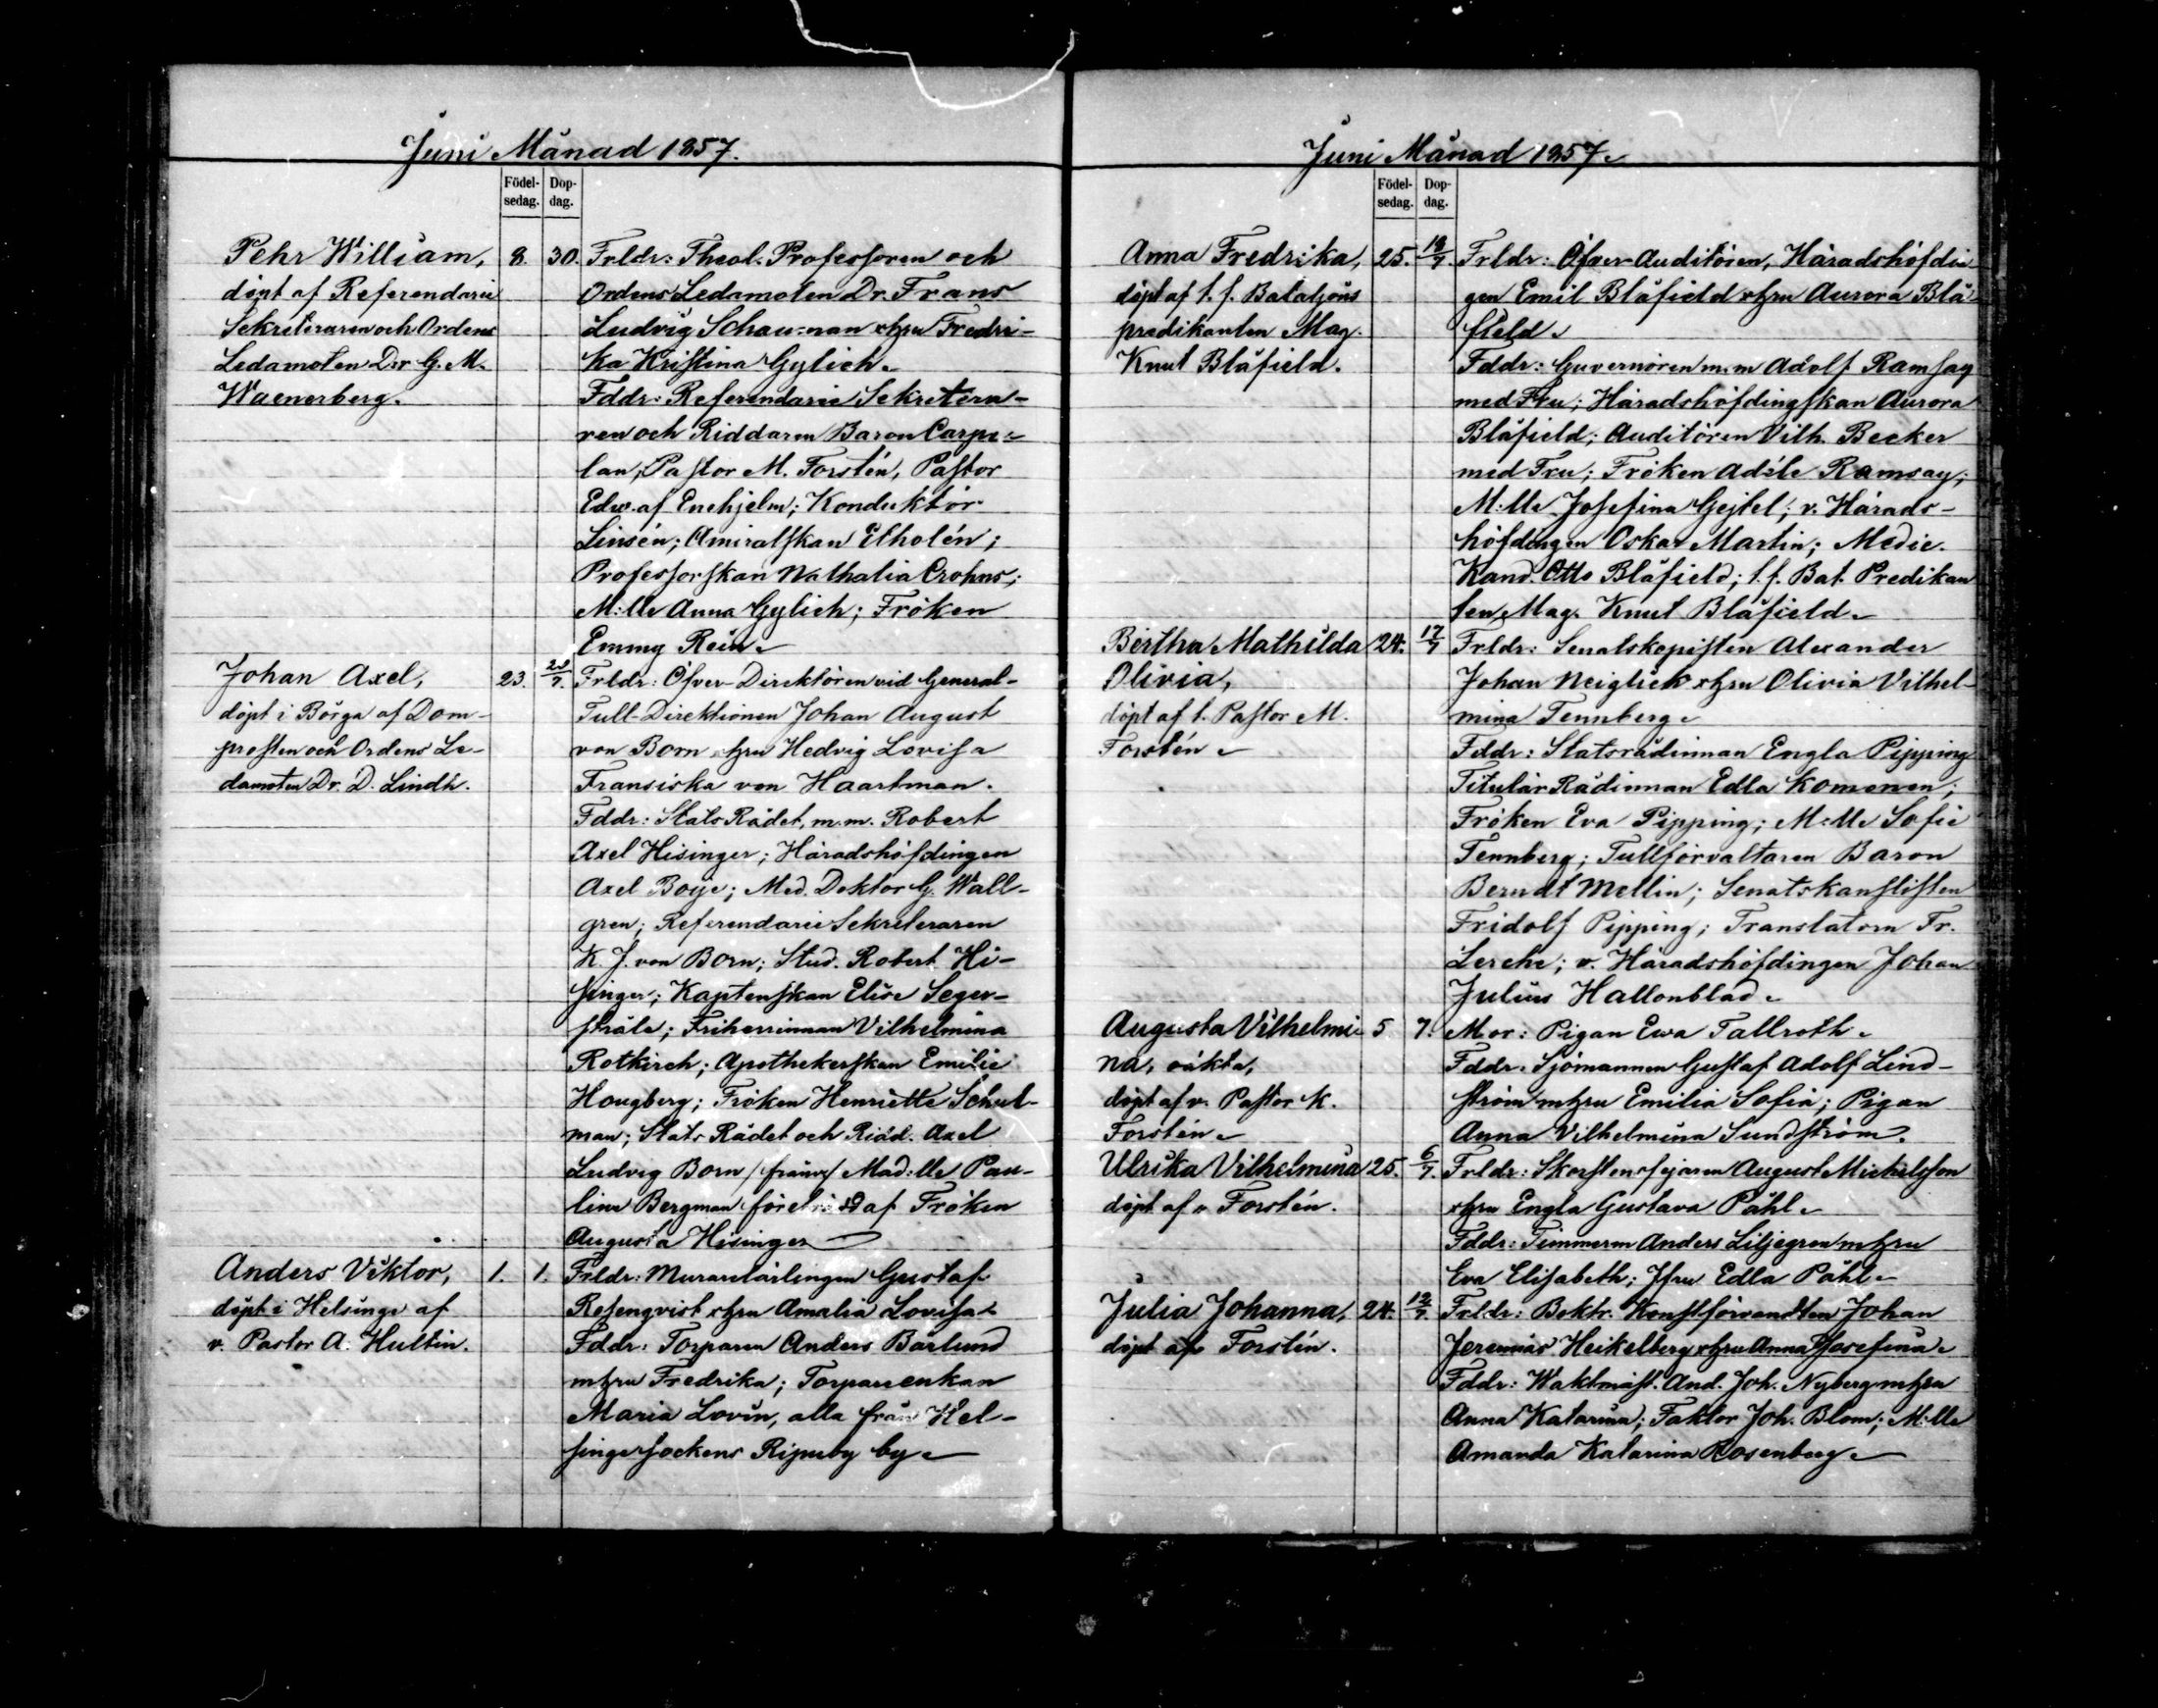 Juni Månad 1857.
Födel-
sedag.
Dop-
dag.
Pehr William,
döpt af Referendarie
Sekreteraren och Ordens
Ledamoten Dr G. M.
Waenerberg.
8.
30.
Frldr: Theol. Professoren och
Ordens Ledamoten Dr. Frans
Ludvig Schauman o hu Fredri-
ka Kristina Gylich.
Fddr: Referendarie Sekretera-
ren och Riddaren Baron Carpe-
lan; Pastor M. Forstén, Pastor
Edw. af Enehjelm; Konduktör
Linsén; Amiralskan Etholén;
Professorskan Nathalia Crohns;
M:lle Anna Gylich; Fröken
Emmy Rein.
Johan Axel,
döpt i Borga af Dom-
prosten och Ordens Le-
damoten Dr. D. Lindh.
23.
28/7.
Frldr: Öfver-Direktören vid General-
Tull-Direktionen Johan August
von Born o hu Hedvig Lovisa
Fransiska von Haartman.
Fddr: Stats Rådet, m.m. Robert
Axel Hisinger; Häradshöfdingen
Axel Boije; Med. Doktor G. Wall-
gren; Referendarie Sekreteraren
K. J. von Born; Stud. Robert Hi-
singer; Kaptenskan Elise Seger-
stråle; Friherrinnan Vilhelmina
Rotkirch; Apothekerskan Emilie
Hougberg; Fröken Henriette Schul-
man; Stats Rådet och Ridd. Axel
Ludvig Born /frånv/ Mad:lle Pau-
line Bergman företrädd af Fröken
Augusta Hisinger
Anders Viktor,
döpt i Helsinge af
v. Pastor A. Hultin.
1.
1.
Frldr: Murarelärlingen Gustaf
Rosenqvist o hu Amalia Lovisa
Fddr: Torparen Anders Barlund
m hu Fredrika; Torparenkan
Maria Lovin, alla från Hel-
singe sockens Ripuby by
Juni Månad 1857.
Födel-
sedag.
Dop-
dag.
Anna Fredrika,
döpt af t. f. Bataljons
predikanten Mag.
Knut Blåfield.
25.
18/7
Frldr: Öfver-Auditören, Häradshöfdin
gen Emil Blåfield o hu Aurora Blå
field.
Fddr: Guvernören m.m Adolf Ramsay
med Fru; Häradshöfdingskan Aurora
Blåfield; Auditören Vilh. Becker
med Fru; Fröken Adéle Ramsay;
M:lle Josefina Gejtel; v. Härads-
höfdingen Oskar Martin; Medic.
Kand. Otto Blåfield; t. f. Bat. Predikan
ten Mag. Knut Blåfield.
Bertha Mathilda
Olivia,
döpt af t. Pastor M.
Forstén.
24.
17/7
Frldr: Senatskopisten Alexander
Johan Neiglick o hu Olivia Vilhel-
mina Tennberg.
Fddr: Statsrådinnan Engla Pipping
Titulär Rådinnan Edla Komonen;
Fröken Eva Pipping; M:lle Sofie
Tennberg; Tullförvaltaren Baron
Berndt Mellin; Senatskanslisten
Fridolf Pipping; Translatorn Fr.
Lerche; v. Häradshöfdingen Johan
Julius Hallonblad.
Augusta Vilhelmi
na, oäkta,
döpt af v. Pastor K.
Forstén.
5
7.
Mor: Pigan Ewa Tallroth.
Fddr: Sjömannen Gustaf Adolf Lind-
ström m hu Emilia Sofia; Pigan
Anna Vilhelmina Sundström.
Ulrika Vilhelmina
döpt af v Forstén.
25.
6/7.
Frldr: Skorstensfejaren August Michelsson
o hu Engla Gustava Påhl.
Fddr: Timmerm Anders Liljegren m hu
Eva Elisabeth; Jfru Edla Påhl.
Julia Johanna,
döpt af Forstén.
24.
12/7.
Frldr: Boktr. Konstförvandten Johan
Jeremias Heikelberg o hu Anna Josefina.
Fddr: Waktmäst. And. Joh. Nyberg m hu
Anna Katarina; Faktor Joh. Blom; M:lle
Amanda Katarina Rosenberg.